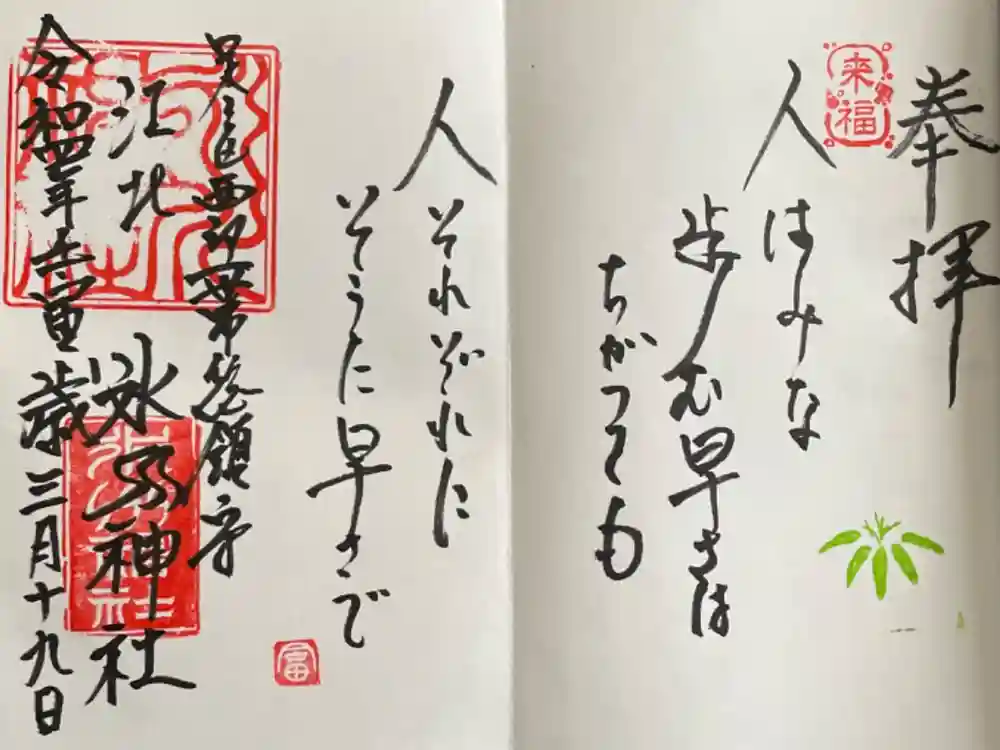 奉拝
来福
人はみな
歩む早さは
ちがつても
人それぞれに
そうとに早さで
足立区西部葉常総領守
江北 氷川神社
令和四年壬寅歳三月十九日
氷川神社
富